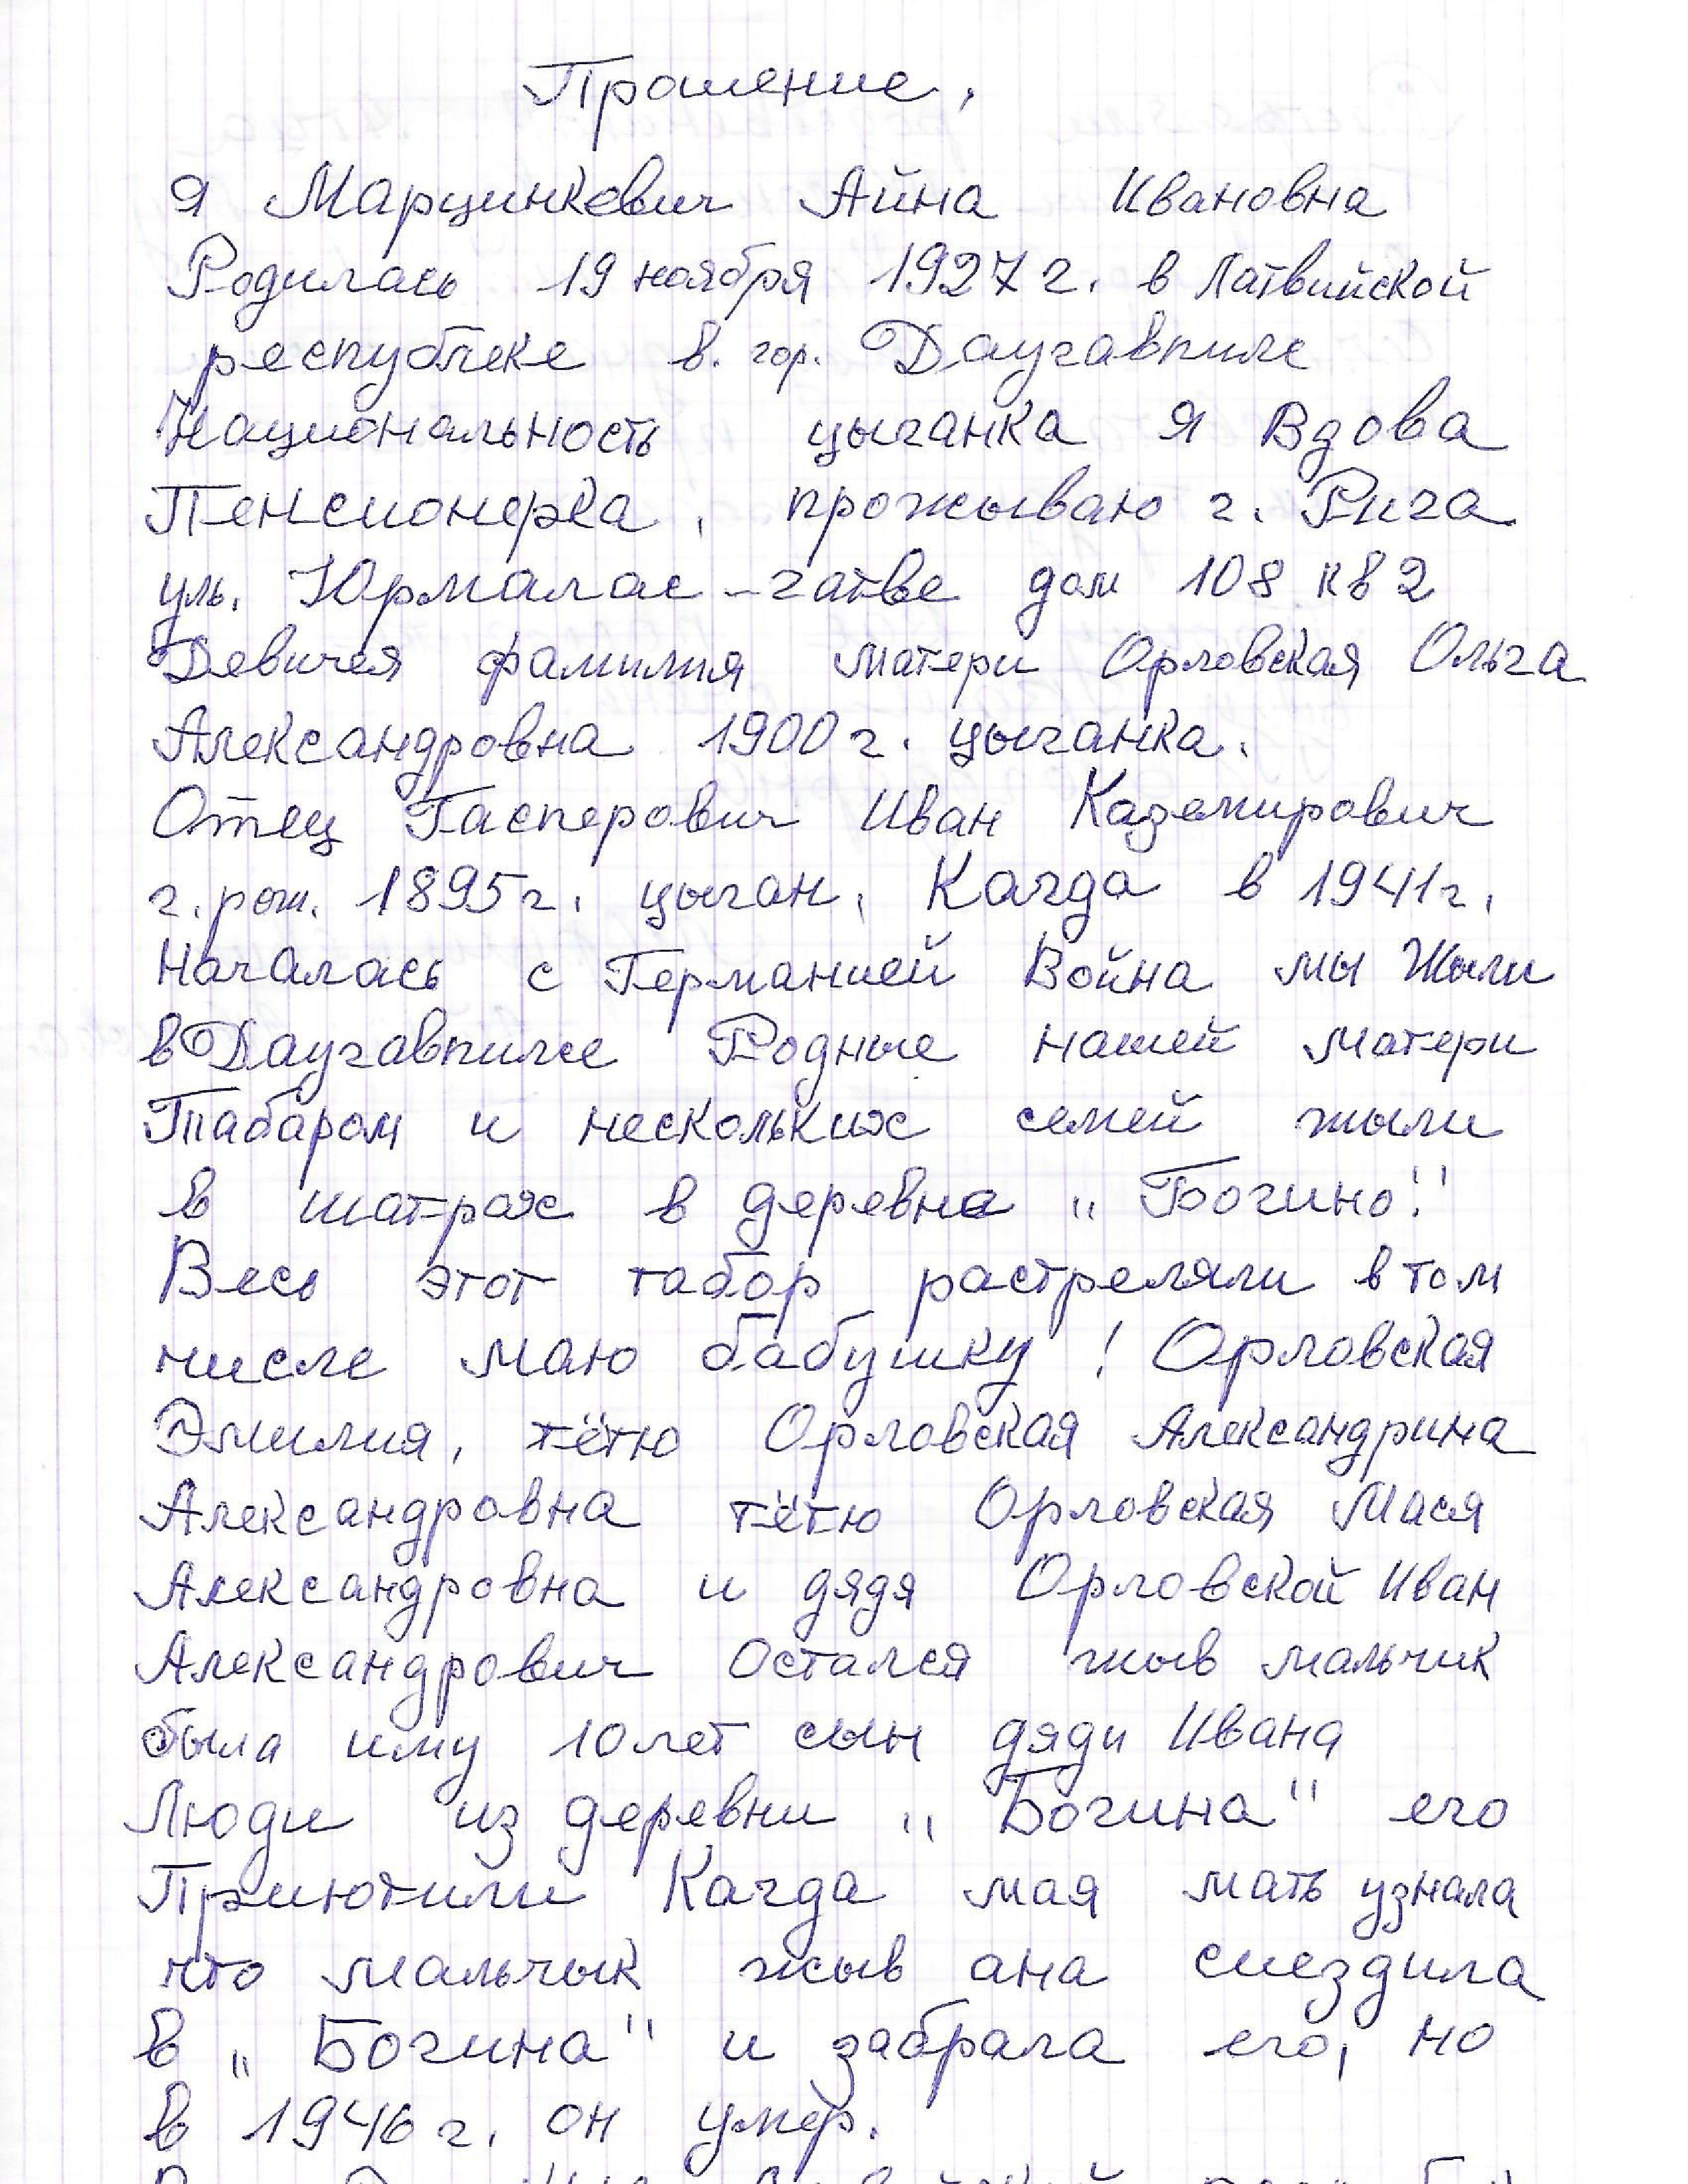 Прошение.
Я Марцинкевич Айна Ивановна
Родилась 19 ноября 1927 г. в Латвийской
республеке в. гор. Даугавпилс
Национальность цыганка я Вдова
Пенсионерка, прожываю г. Рига
уль. Юрмалас-гатве дом 108 кв 2
Девичея фамилия матери Орловская Ольга
Александровна 1900 г. цыганка.
Отец Гасперович Иван Каземирович
г. рож. 1895 г. цыган. Кагда в 1941 г.
Началась с Германией Война мы Жыли
в Даугавпилсе Родные нашей матери
Табаром и нескольких семей жыли
в шатрах в деревне "Богино"
Весь этот табор растреляли в том
числе маю бабушку! Орловская
Эмилия, тётю Орловская Александрина
Александровна тётю Орловская Мася
Александровна и дядя Орловской Иван
Александрович Остался жыв мальчик
была иму 10 лет сын дяди Ивана
Люди из деревни "Богина" его
Приютили Кагда мая мать узнала
что мальчык жыв ана сиездила
в "Богина" и забрала его, но
в 1946 г. он умер.